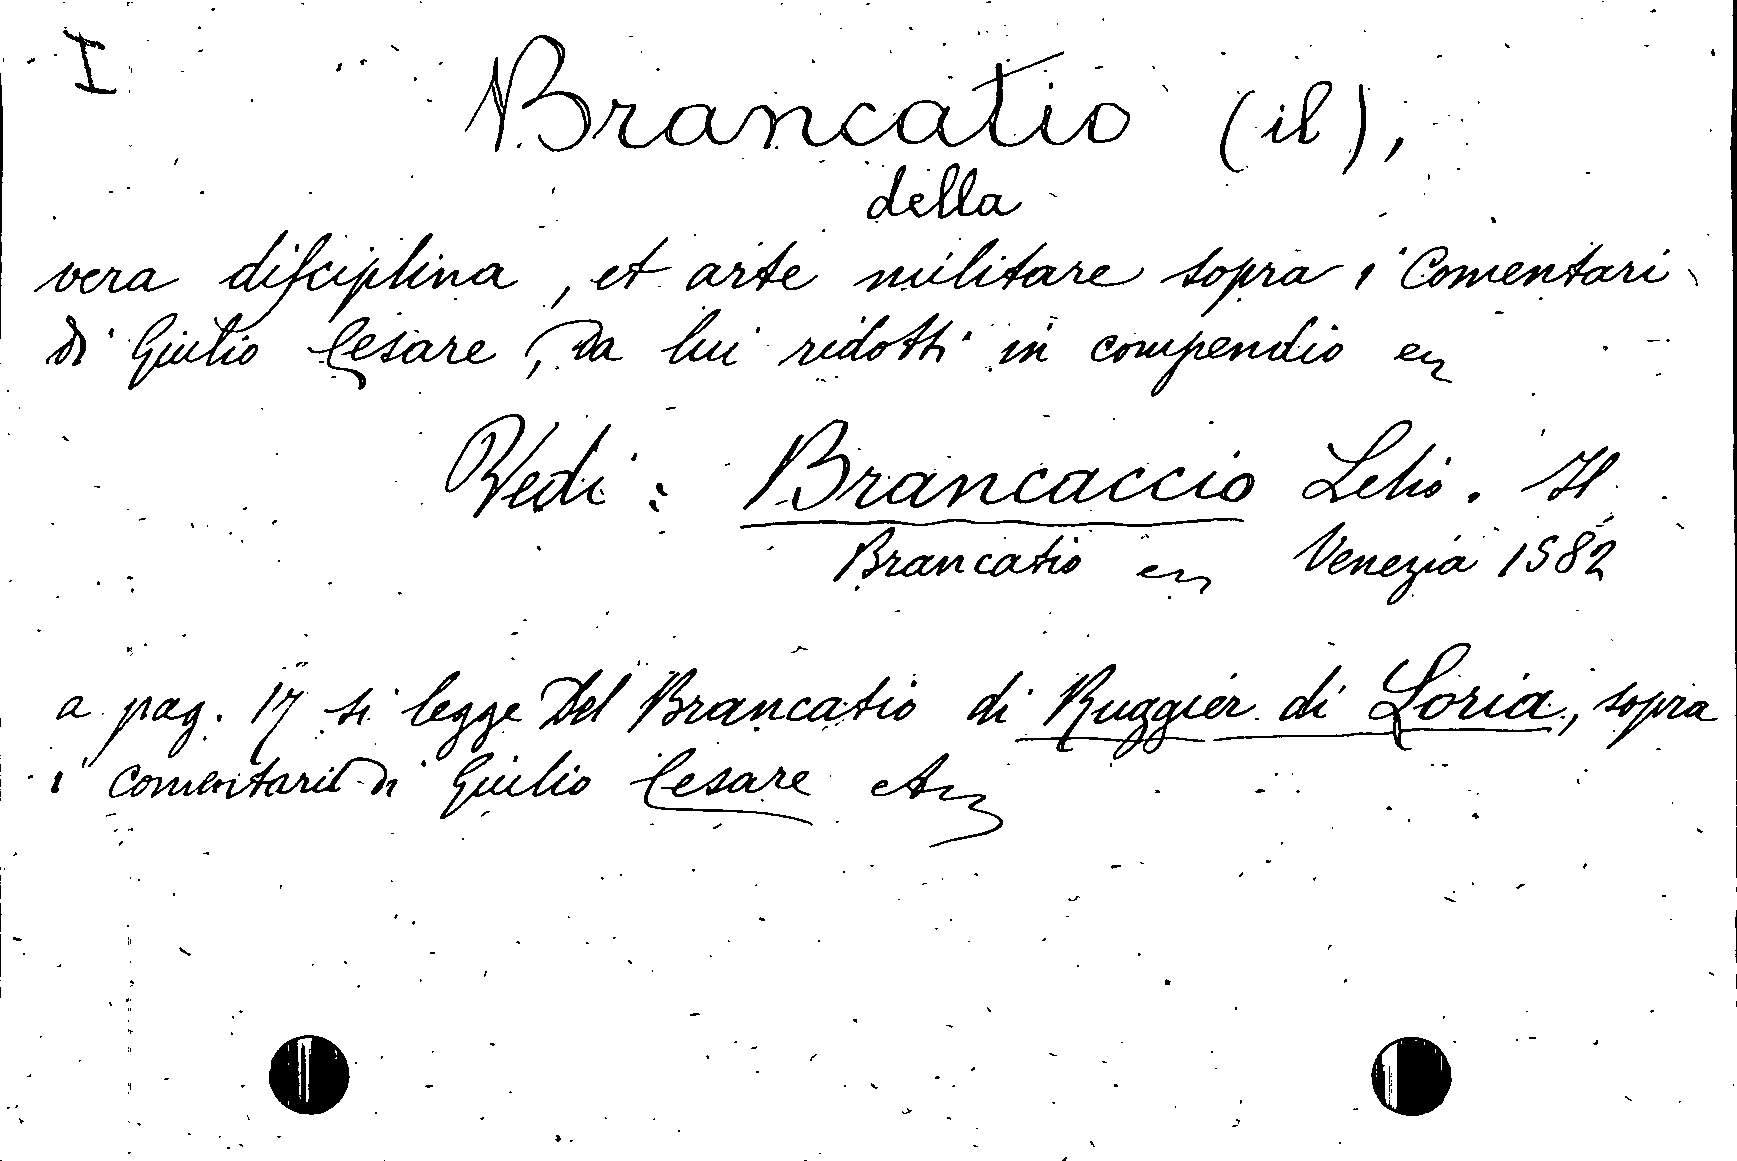 I
Brancatio (il),
della
vera disciplina, et arte militare sopra i Comentari
di Giulio Cesare, da lui ridotti in compendio
Vedi: Brancaccio Lelio. Il
Brancatio Venezia 1582
a pag. 17 si legge Del Brancatio di Ruggier di Loria, sopra
i comentarii di Giulio Cesare